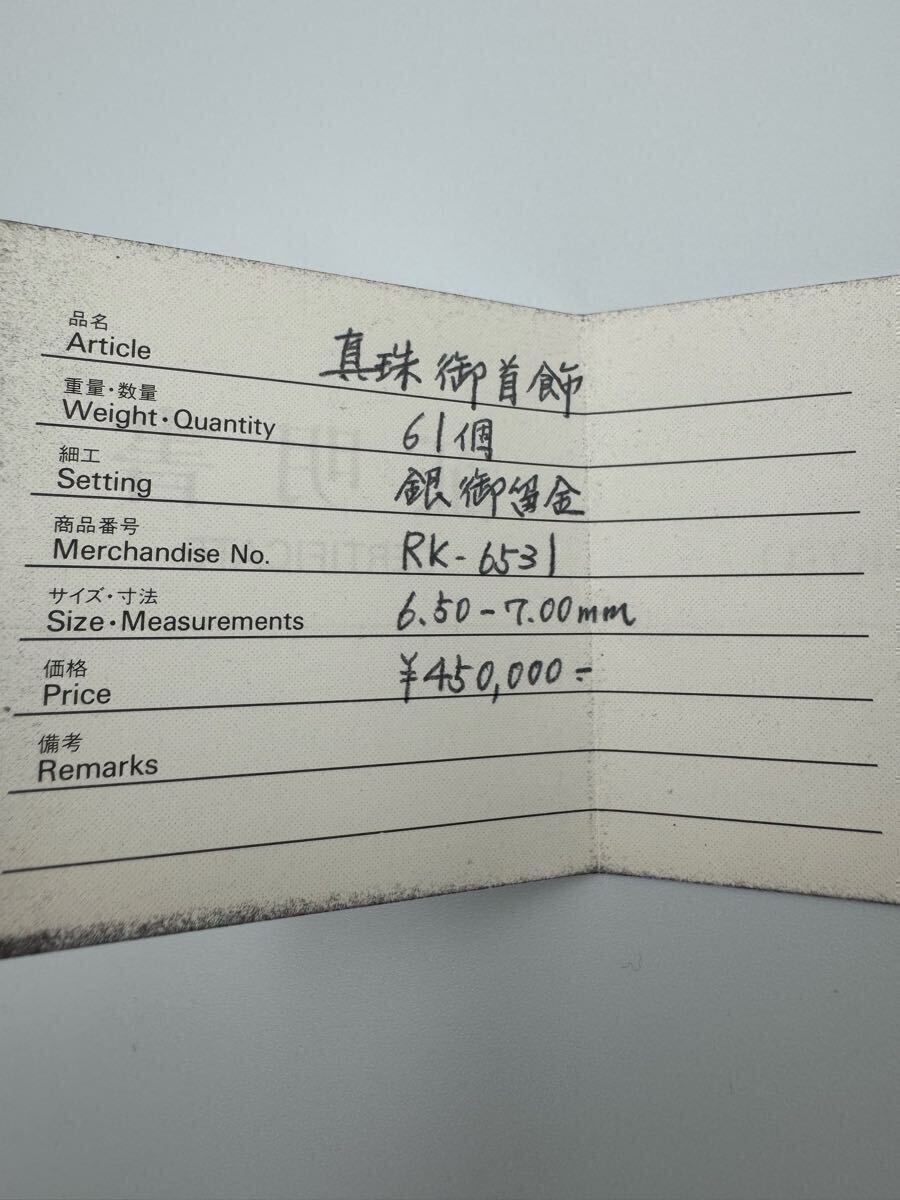 品名
Article 真珠御首飾
重量・数量
Weight・Quantity 61個
細工
Setting 銀御留金
商品番号
Merchandise No. RK-6531
サイズ・寸法
Size・Measurements 6.50-7.00mm
価格
Price ¥450,000-
備考
Remarks